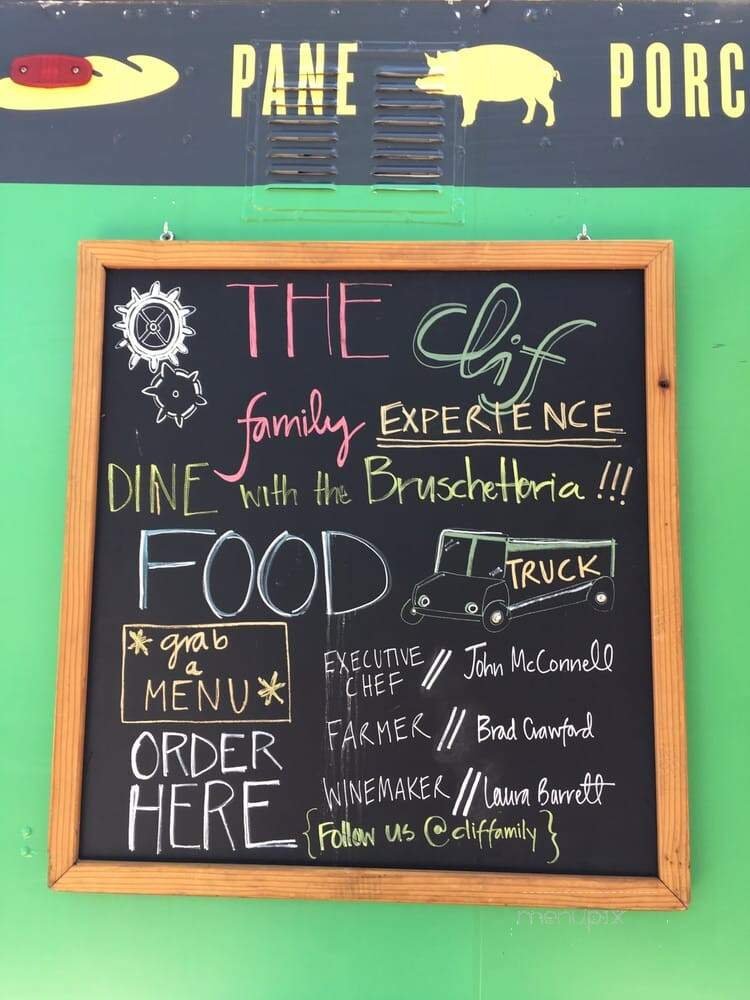 PANE PORC
THE Clif
family EXPERIENCE
DINE with the Bruschetteria !!!
FOOD TRUCK
* grab
a
MENU *
ORDER
HERE
EXECUTIVE CHEF // John McConnell
FARMER // Brad Crawford
WINEMAKER // Laura Barrett
{Follow us @cliffamily}
menupix